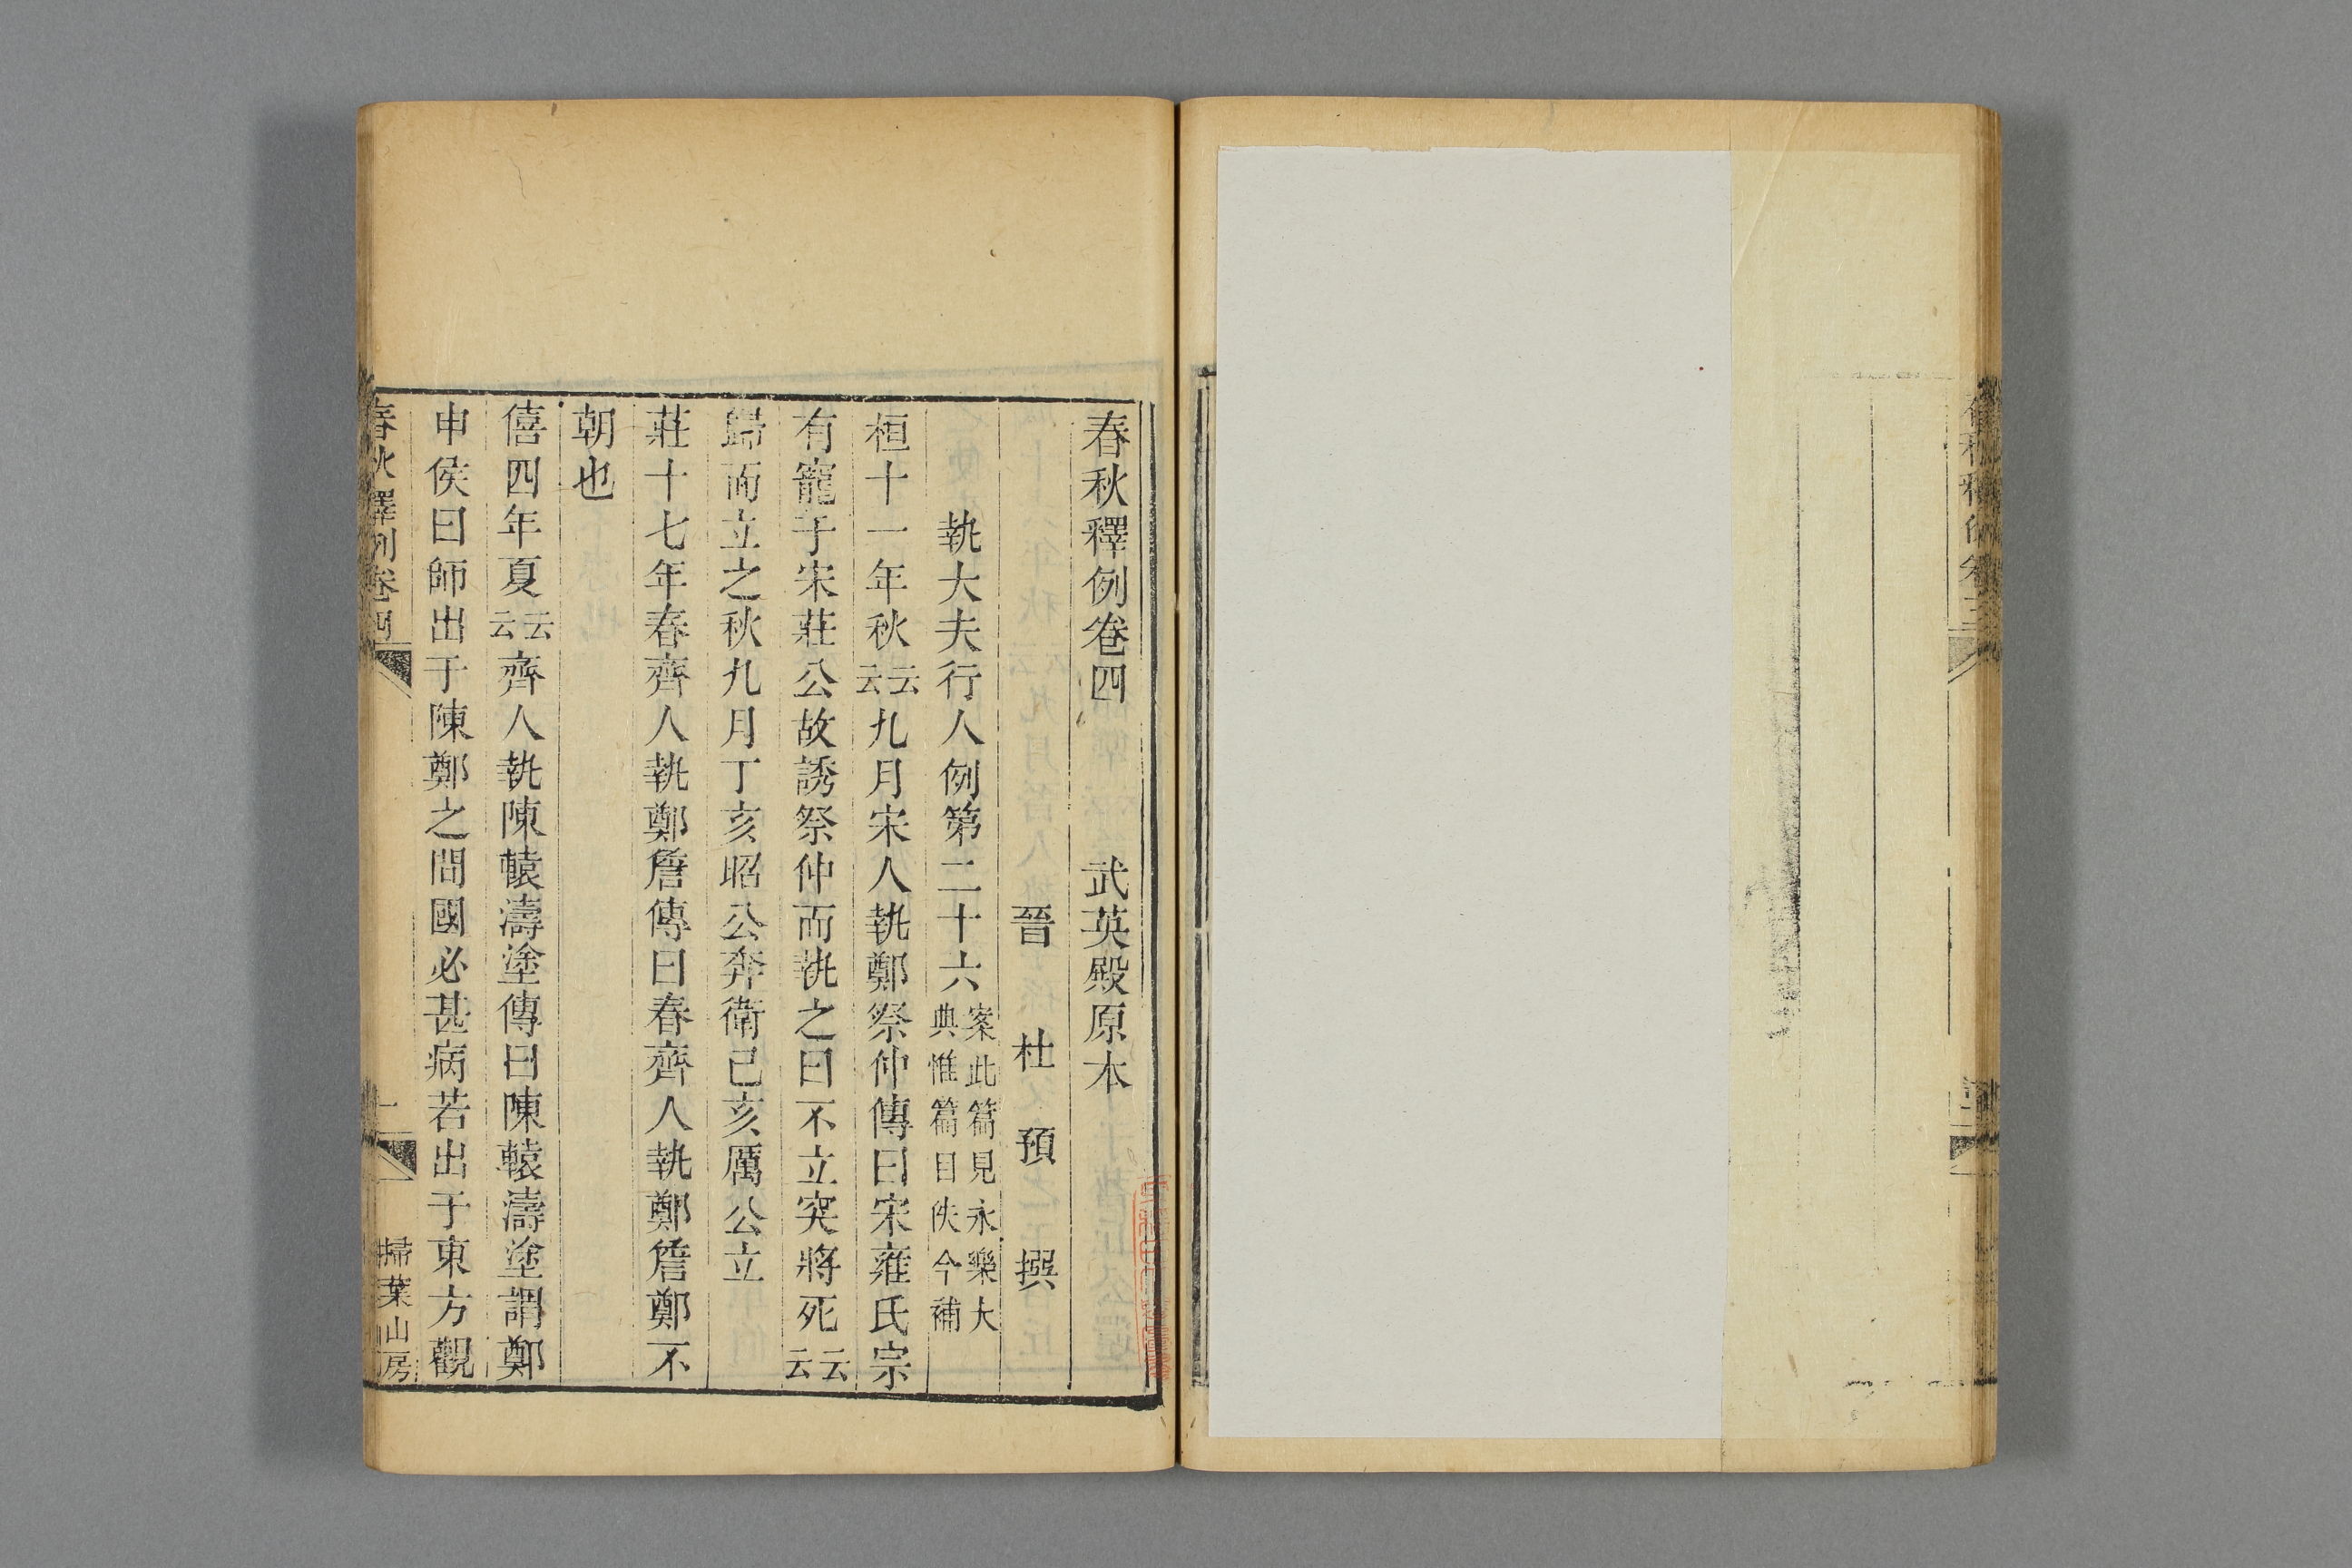 春秋釋例卷四　武英殿原本
晉　杜　預　撰
執大夫行人例第二十六案此篇見永樂大
典惟篇目佚今補
桓十一年秋云云九月宋人執鄭祭仲傳曰宋雍氏宗
有寵于宋莊公故誘祭仲而執之曰不立突將死云云
歸而立之秋九月丁亥昭公奔衛己亥厲公立
莊十七年春齊人執鄭詹傳曰春齊人執鄭詹鄭不
朝也
僖四年夏云云齊人執陳轅濤塗傳曰陳轅濤塗謂鄭
申侯曰師出于陳鄭之間國必甚病若出于東方觀
春秋釋例卷四　一　掃葉山房